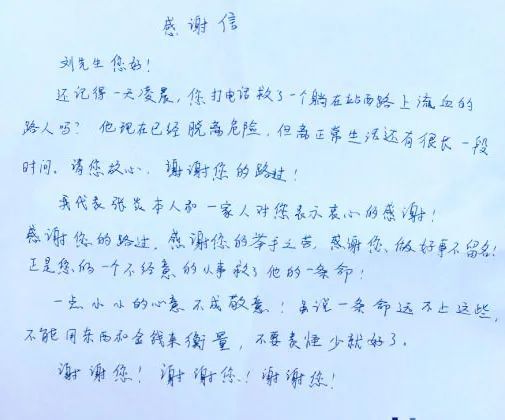 感谢信
刘先生您好!
还记得一天凌晨,您打电话救了一个躺在站西路上流血的
路人吗?他现在已经脱离危险,但离正常生活还有很长一段
时间。请您放心,谢谢您的路过!
我代表张炎本人和一家人对您表示衷心的感谢!
感谢您的路过,感谢您的举手之劳,感谢您做好事不留名!
正是您的一个不经意的从事救了他的一条命!
一点小小的心意不成敬意!虽说一条命远不止这些,
不能用东西和金钱来衡量,不要责怪少就好了。
谢谢您!谢谢您!谢谢您!